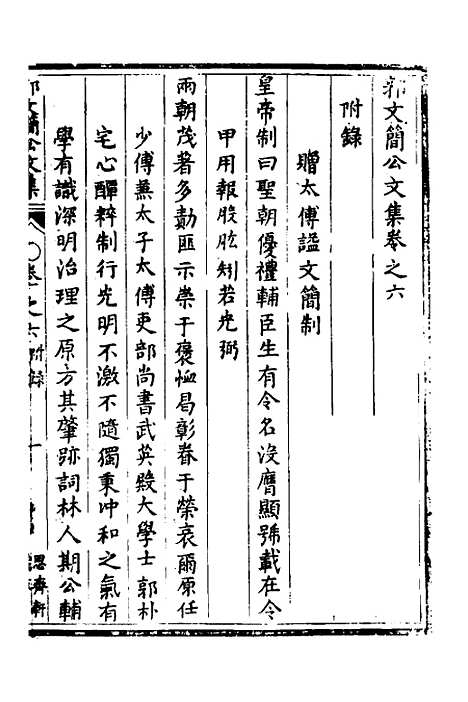 郭文簡公文集卷之六
附錄
贈太傅謚文簡制
皇帝制曰聖朝優禮輔臣生有令名沒膺顯號載在令
甲用報股肱矧若光弼
兩朝茂著多勛匪示崇于褒恤曷彰眷于榮哀爾原任
少傅兼太子太傅吏部尚書武英殿大學士郭朴
宅心醇粹制行光明不激不隨獨秉冲和之氣有
學有識深明治理之原方其肇跡詞林人期公輔
郭文簡公文集
卷之六
附錄
一
思齊軒